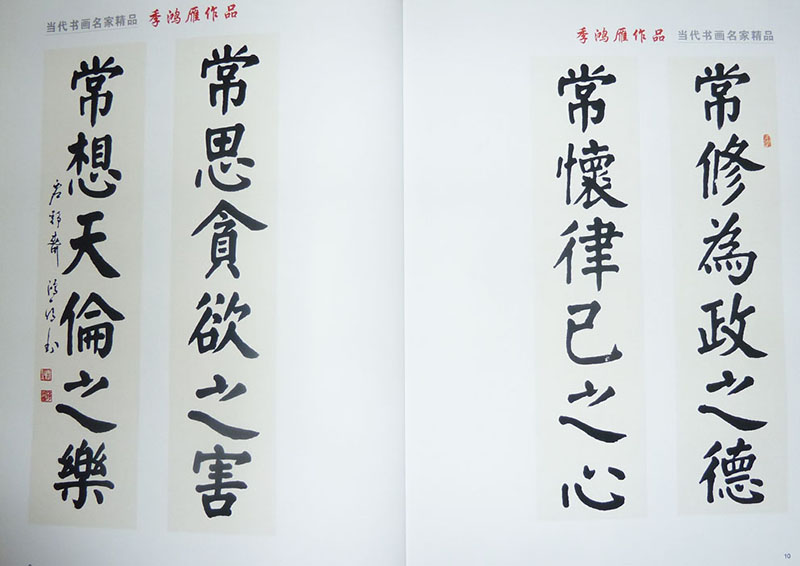 季鸿雁作品 当代书画名家精品
常修為政之德
常懷律己之心
10
当代书画名家精品 季鸿雁作品
常思貪欲之害
常想天倫之樂